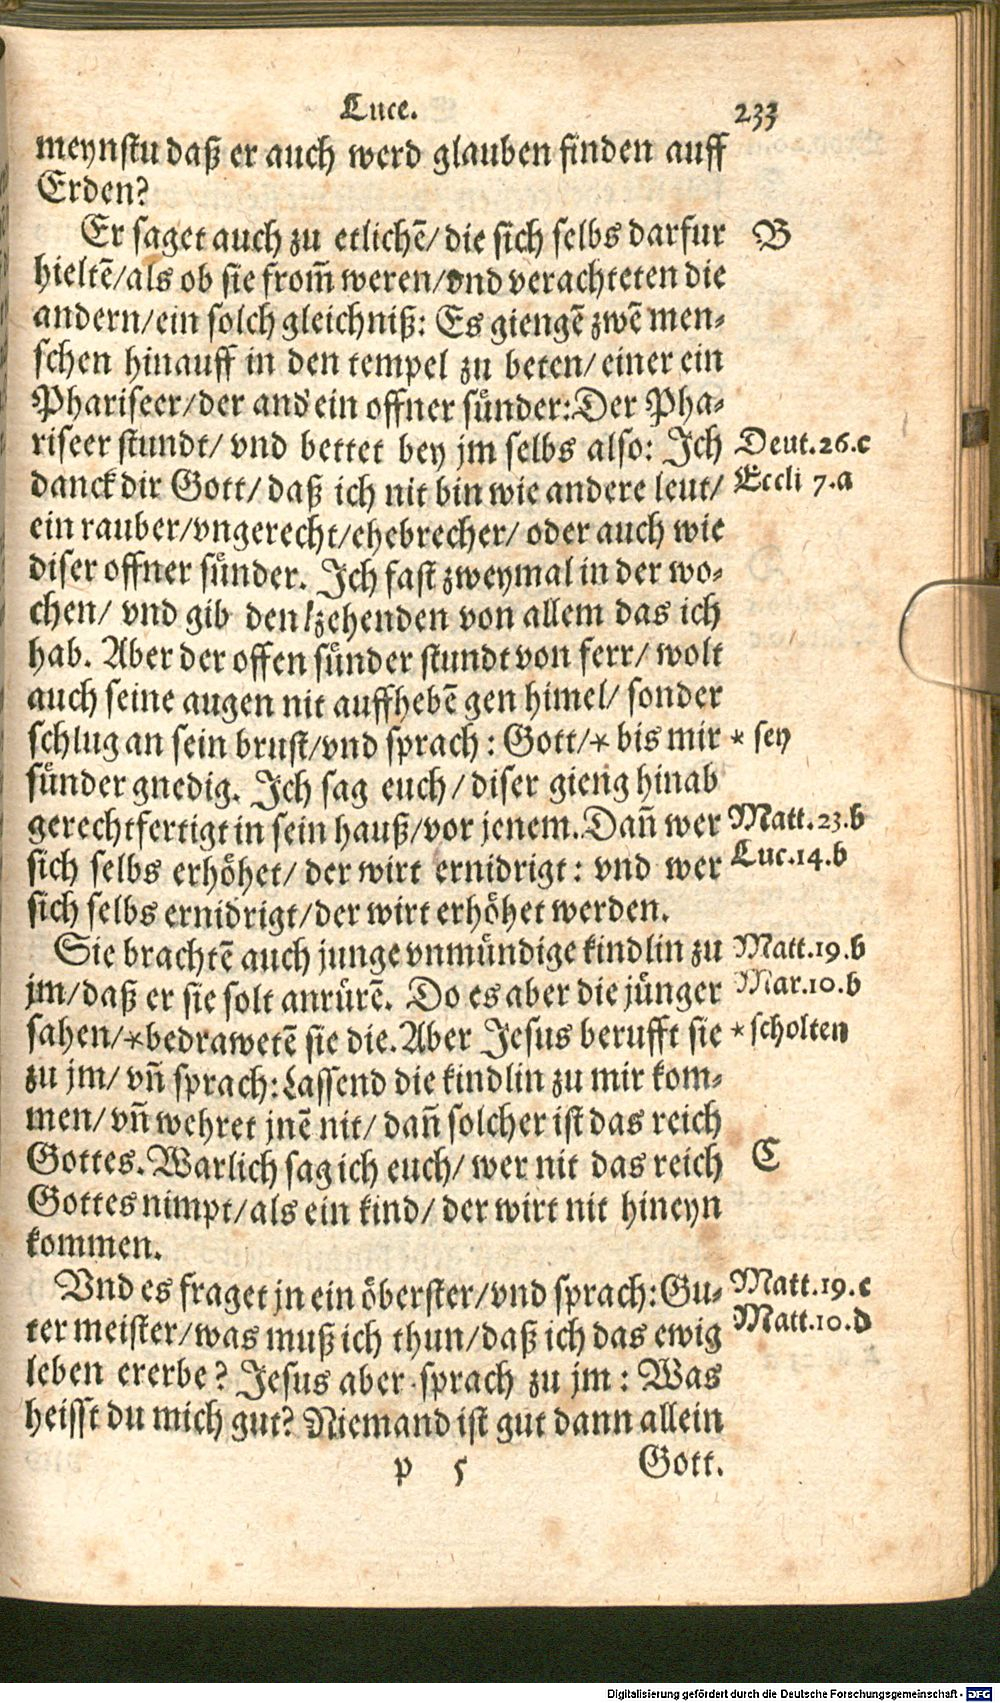 Luce. 233
meynstu daß er auch werd glauben finden auff
Erden?
Er saget auch zu etlichē/ die sich selbs darfur B
hieltē/als ob sie from̄ weren/vnd verachteten die
andern/ein solch gleichniß: Es giengē zwē men⸗
schen hinauff in den tempel zu beten/ einer ein
Phariseer/der and' ein offner sünder: Der Pha⸗
riseer stundt/ vnd bettet bey jm selbs also: Ich Deut. 26.c
danck dir Gott/ daß ich nit bin wie andere leut/ Eccli 7.a
ein rauber/vngerecht/ehebrecher/ oder auch wie
diser offner sünder. Ich fast zweymal in der wo⸗
chen/ vnd gib den zehenden von allem das ich
hab. Aber der offen sünder stundt von ferr/ wolt
auch seine augen nit auffhebē gen himel/ sonder
schlug an sein brust/vnd sprach: Gott/* bis mir * sey
sünder gnedig. Ich sag euch/ diser gieng hinab
gerechtfertigt in sein hauß/vor jenem. Dañ wer Matt. 23.b
sich selbs erhöhet/ der wirt ernidrigt: vnd wer Luc. 14.b
sich selbs ernidrigt/der wirt erhöhet werden.
Sie brachtē auch junge vnmündige kindlin zu Matt. 19.b
jm/daß er sie solt anrürē. Do es aber die jünger Mar. 10.b
sahen/*bedrawetē sie die. Aber Jesus berufft sie * scholten
zu jm/ vñ sprach: Lassend die kindlin zu mir kom⸗
men/ vñ wehret jnē nit/ dañ solcher ist das reich
Gottes. Warlich sag ich euch/ wer nit das reich C
Gottes nimpt/als ein kind/ der wirt nit hineyn
kommen.
Vnd es fraget jn ein öberster/vnd sprach: Gu⸗ Matt. 19.c
ter meister/was muß ich thun/daß ich das ewig Matt. 10.d
leben ererbe? Jesus aber sprach zu jm: Was
heisst du mich gut? Niemand ist gut dann allein
p 5 Gott.
Digitalisierung gefördert durch die Deutsche Forschungsgemeinschaft - DFG